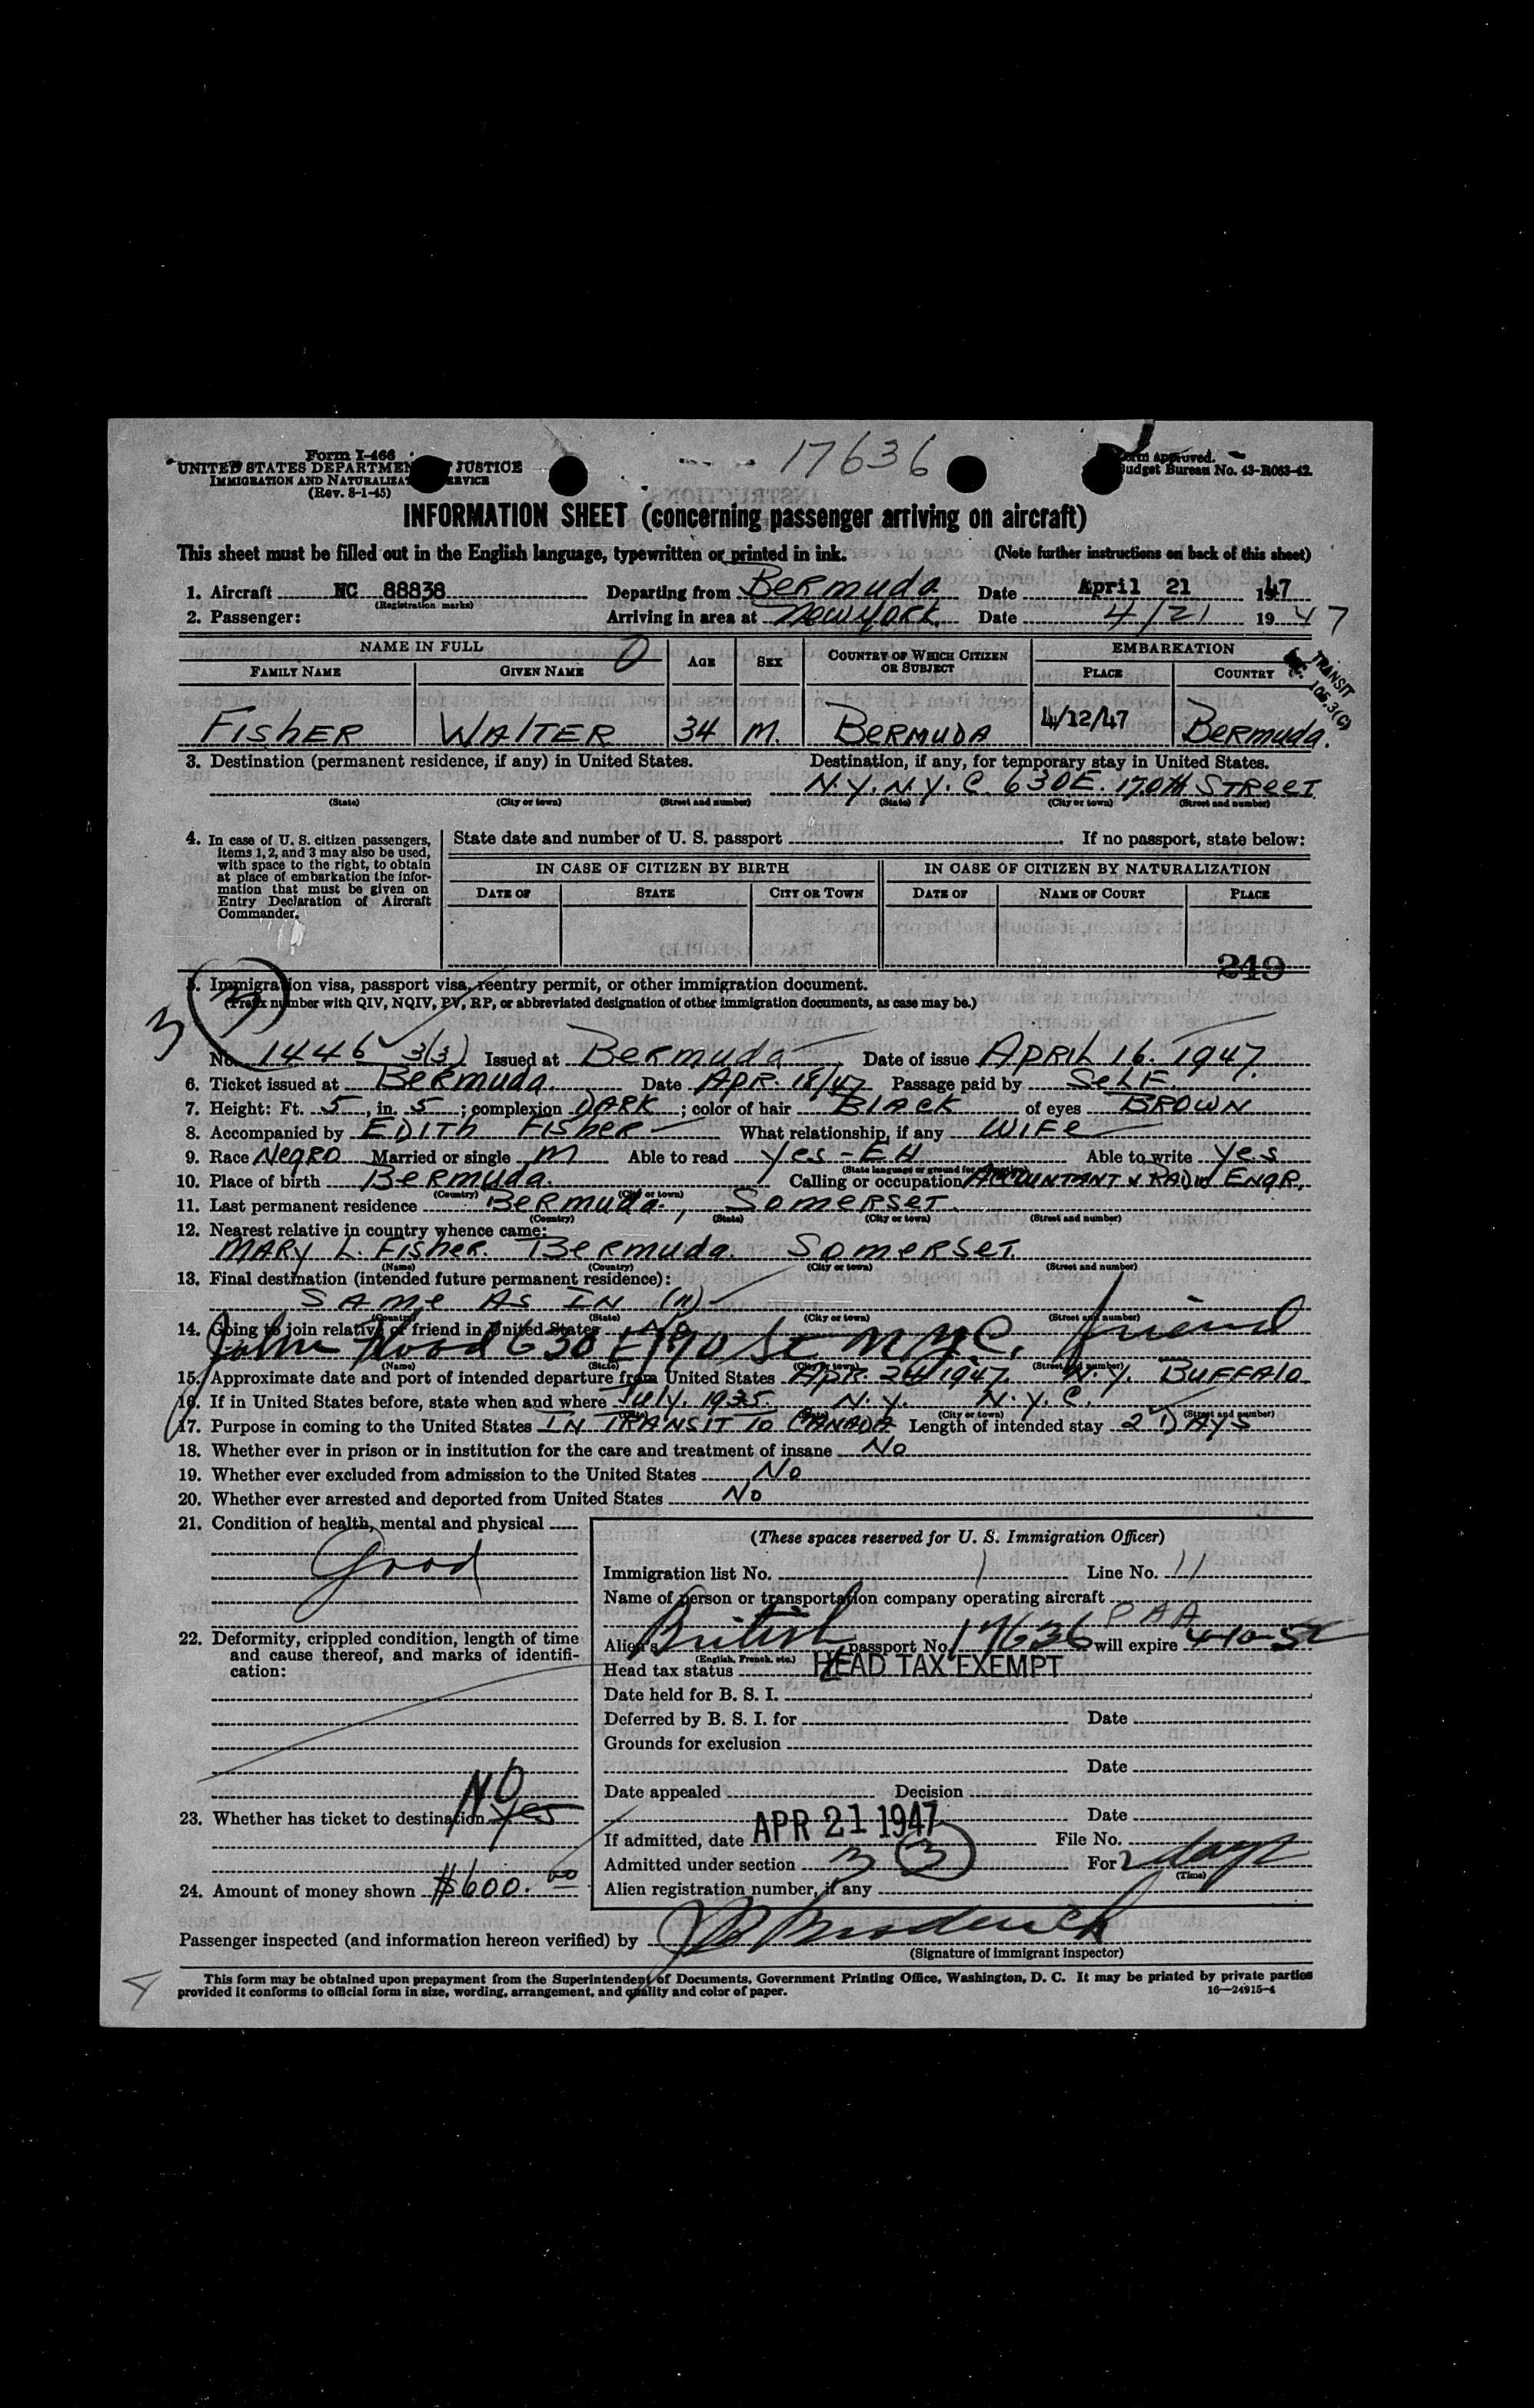 17636
Form I-466
UNITED STATES DEPARTMENT JUSTICE
IMMIGRATION AND NATURALIZAT SERVICE
(Rev. 8-1-45)
Form approved.
Budget Bureau No. 43-R063-42.
INFORMATION SHEET (concerning passenger arriving on aircraft)
This sheet must be filled out in the English language, typewritten or printed in ink. (Note further instructions on back of this sheet)
1. Aircraft NC 88838 Departing from Bermuda. Date April 21 1947
(Registration marks)
2. Passenger: Arriving in area at New York. Date 4/21 1947
NAME IN FULL AGE SEX COUNTRY OF WHICH CITIZEN OR SUBJECT EMBARKATION
FAMILY NAME GIVEN NAME PLACE COUNTRY
TRANSIT
105.3(C)
FISHER WALTER 34 M. BERMUDA 4/12/47 Bermuda.
3. Destination (permanent residence, if any) in United States. Destination, if any, for temporary stay in United States.
N.Y. N.Y.C 630 E. 170TH STREET
(State) (City or town) (Street and number) (State) (City or town) (Street and number)
4. In case of U. S. citizen passengers, items 1, 2, and 3 may also be used, with space to the right, to obtain at place of embarkation the information that must be given on Entry Declaration of Aircraft Commander.
State date and number of U. S. passport If no passport, state below:
IN CASE OF CITIZEN BY BIRTH IN CASE OF CITIZEN BY NATURALIZATION
DATE OF STATE CITY OR TOWN DATE OF NAME OF COURT PLACE
249
5. Immigration visa, passport visa, reentry permit, or other immigration document.
(Prefix number with QIV, NQIV, PV, RP, or abbreviated designation of other immigration documents, as case may be.)
3 (3)
No. 1446 3(3) Issued at Bermuda Date of issue APRIL 16. 1947.
6. Ticket issued at Bermuda. Date APR. 18/47 Passage paid by SELF.
7. Height: Ft. 5, in. 5; complexion DARK; color of hair BLACK of eyes BROWN
8. Accompanied by EDITH FISHER What relationship, if any WIFE
9. Race NEGRO Married or single M Able to read Yes - EH Able to write Yes
(State language or ground for exemption)
10. Place of birth Bermuda. Calling or occupation ACCOUNTANT & RADIO ENGR.
(Country) (City or town)
11. Last permanent residence Bermuda, SOMERSET.
(Country) (State) (City or town) (Street and number)
12. Nearest relative in country whence came:
MARY L. FISHER. Bermuda. SOMERSET.
(Name) (Country) (City or town) (Street and number)
13. Final destination (intended future permanent residence):
SAME AS IN (11)
(Country) (State) (City or town) (Street and number)
14. Going to join relative or friend in United States No
John Wood 630 E 170 St N.Y.C. friend
(Name) (State) (City or town) (Street and number)
15. Approximate date and port of intended departure from United States APR. 1947 N.Y. BUFFALO
16. If in United States before, state when and where July. 1935. N.Y. N.Y.C.
(State) (City or town) (Street and number)
17. Purpose in coming to the United States IN TRANSIT TO CANADA Length of intended stay 2 DAYS
18. Whether ever in prison or in institution for the care and treatment of insane No
19. Whether ever excluded from admission to the United States No
20. Whether ever arrested and deported from United States No
21. Condition of health, mental and physical
Good
22. Deformity, crippled condition, length of time and cause thereof, and marks of identification:
NO
23. Whether has ticket to destination Yes
24. Amount of money shown $600.00
(These spaces reserved for U. S. Immigration Officer)
Immigration list No. 1 Line No. 11
Name of person or transportation company operating aircraft
PAA
Alien's British passport No. 17636 will expire 4-10-52
(English, French, etc.)
Head tax status HEAD TAX EXEMPT
Date held for B. S. I.
Deferred by B. S. I. for Date
Grounds for exclusion
Date
Date appealed Decision
Date
If admitted, date APR 21 1947 File No.
Admitted under section 3 (3) For 2 days
(Time)
Alien registration number, if any
Passenger inspected (and information hereon verified) by
(Signature of immigrant inspector)
This form may be obtained upon prepayment from the Superintendent of Documents, Government Printing Office, Washington, D. C. It may be printed by private parties
provided it conforms to official form in size, wording, arrangement, and quality and color of paper. 16—24915-4